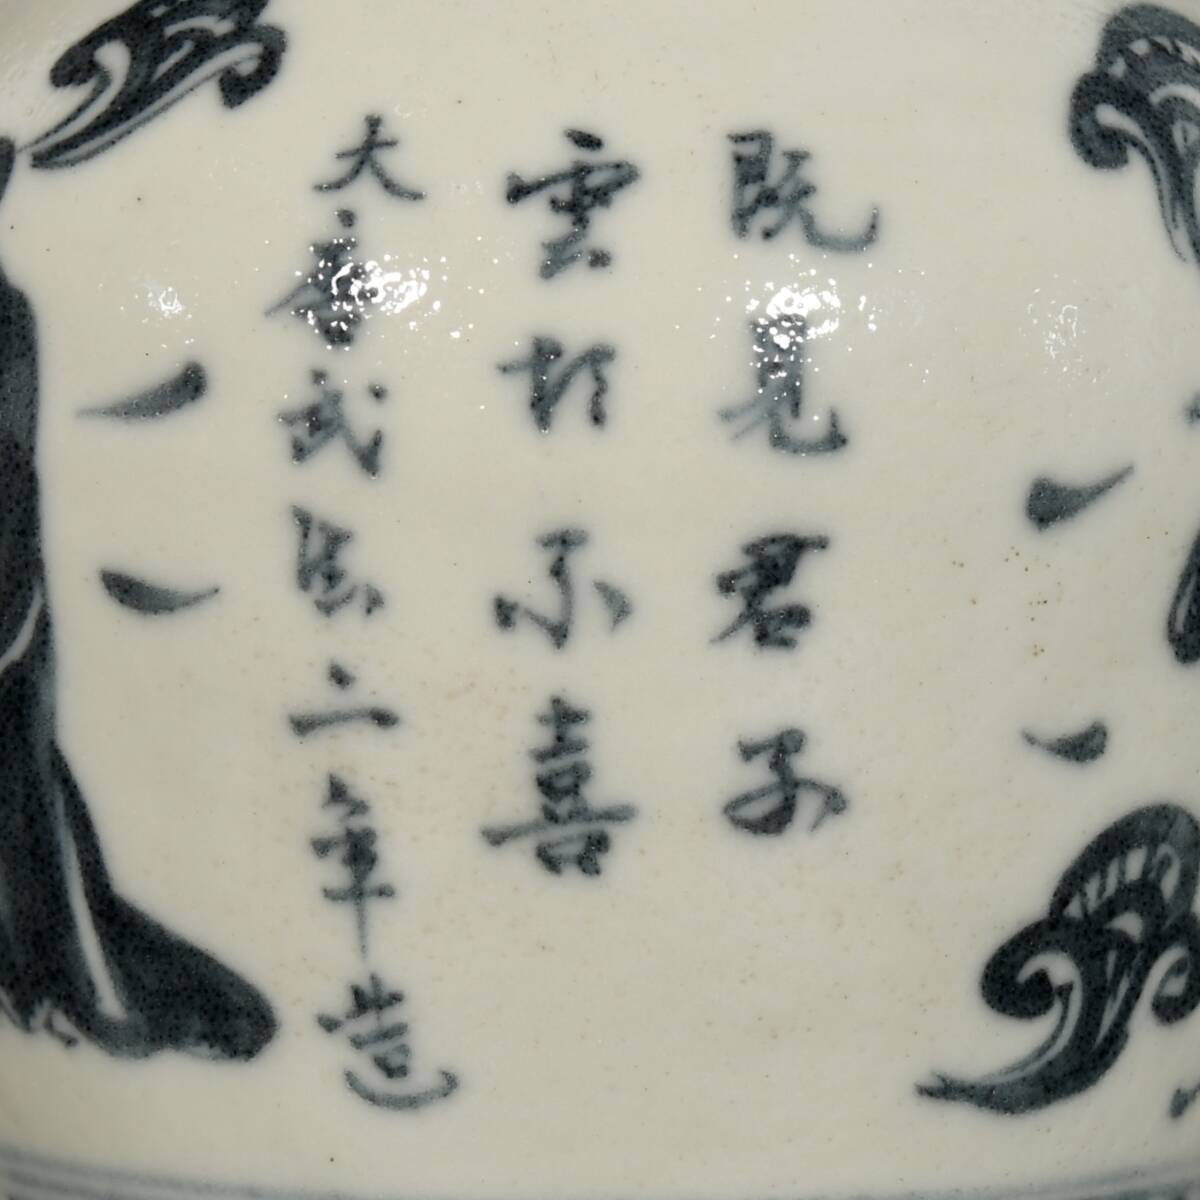 既見君子
雲胡不喜
大唐武德二年造